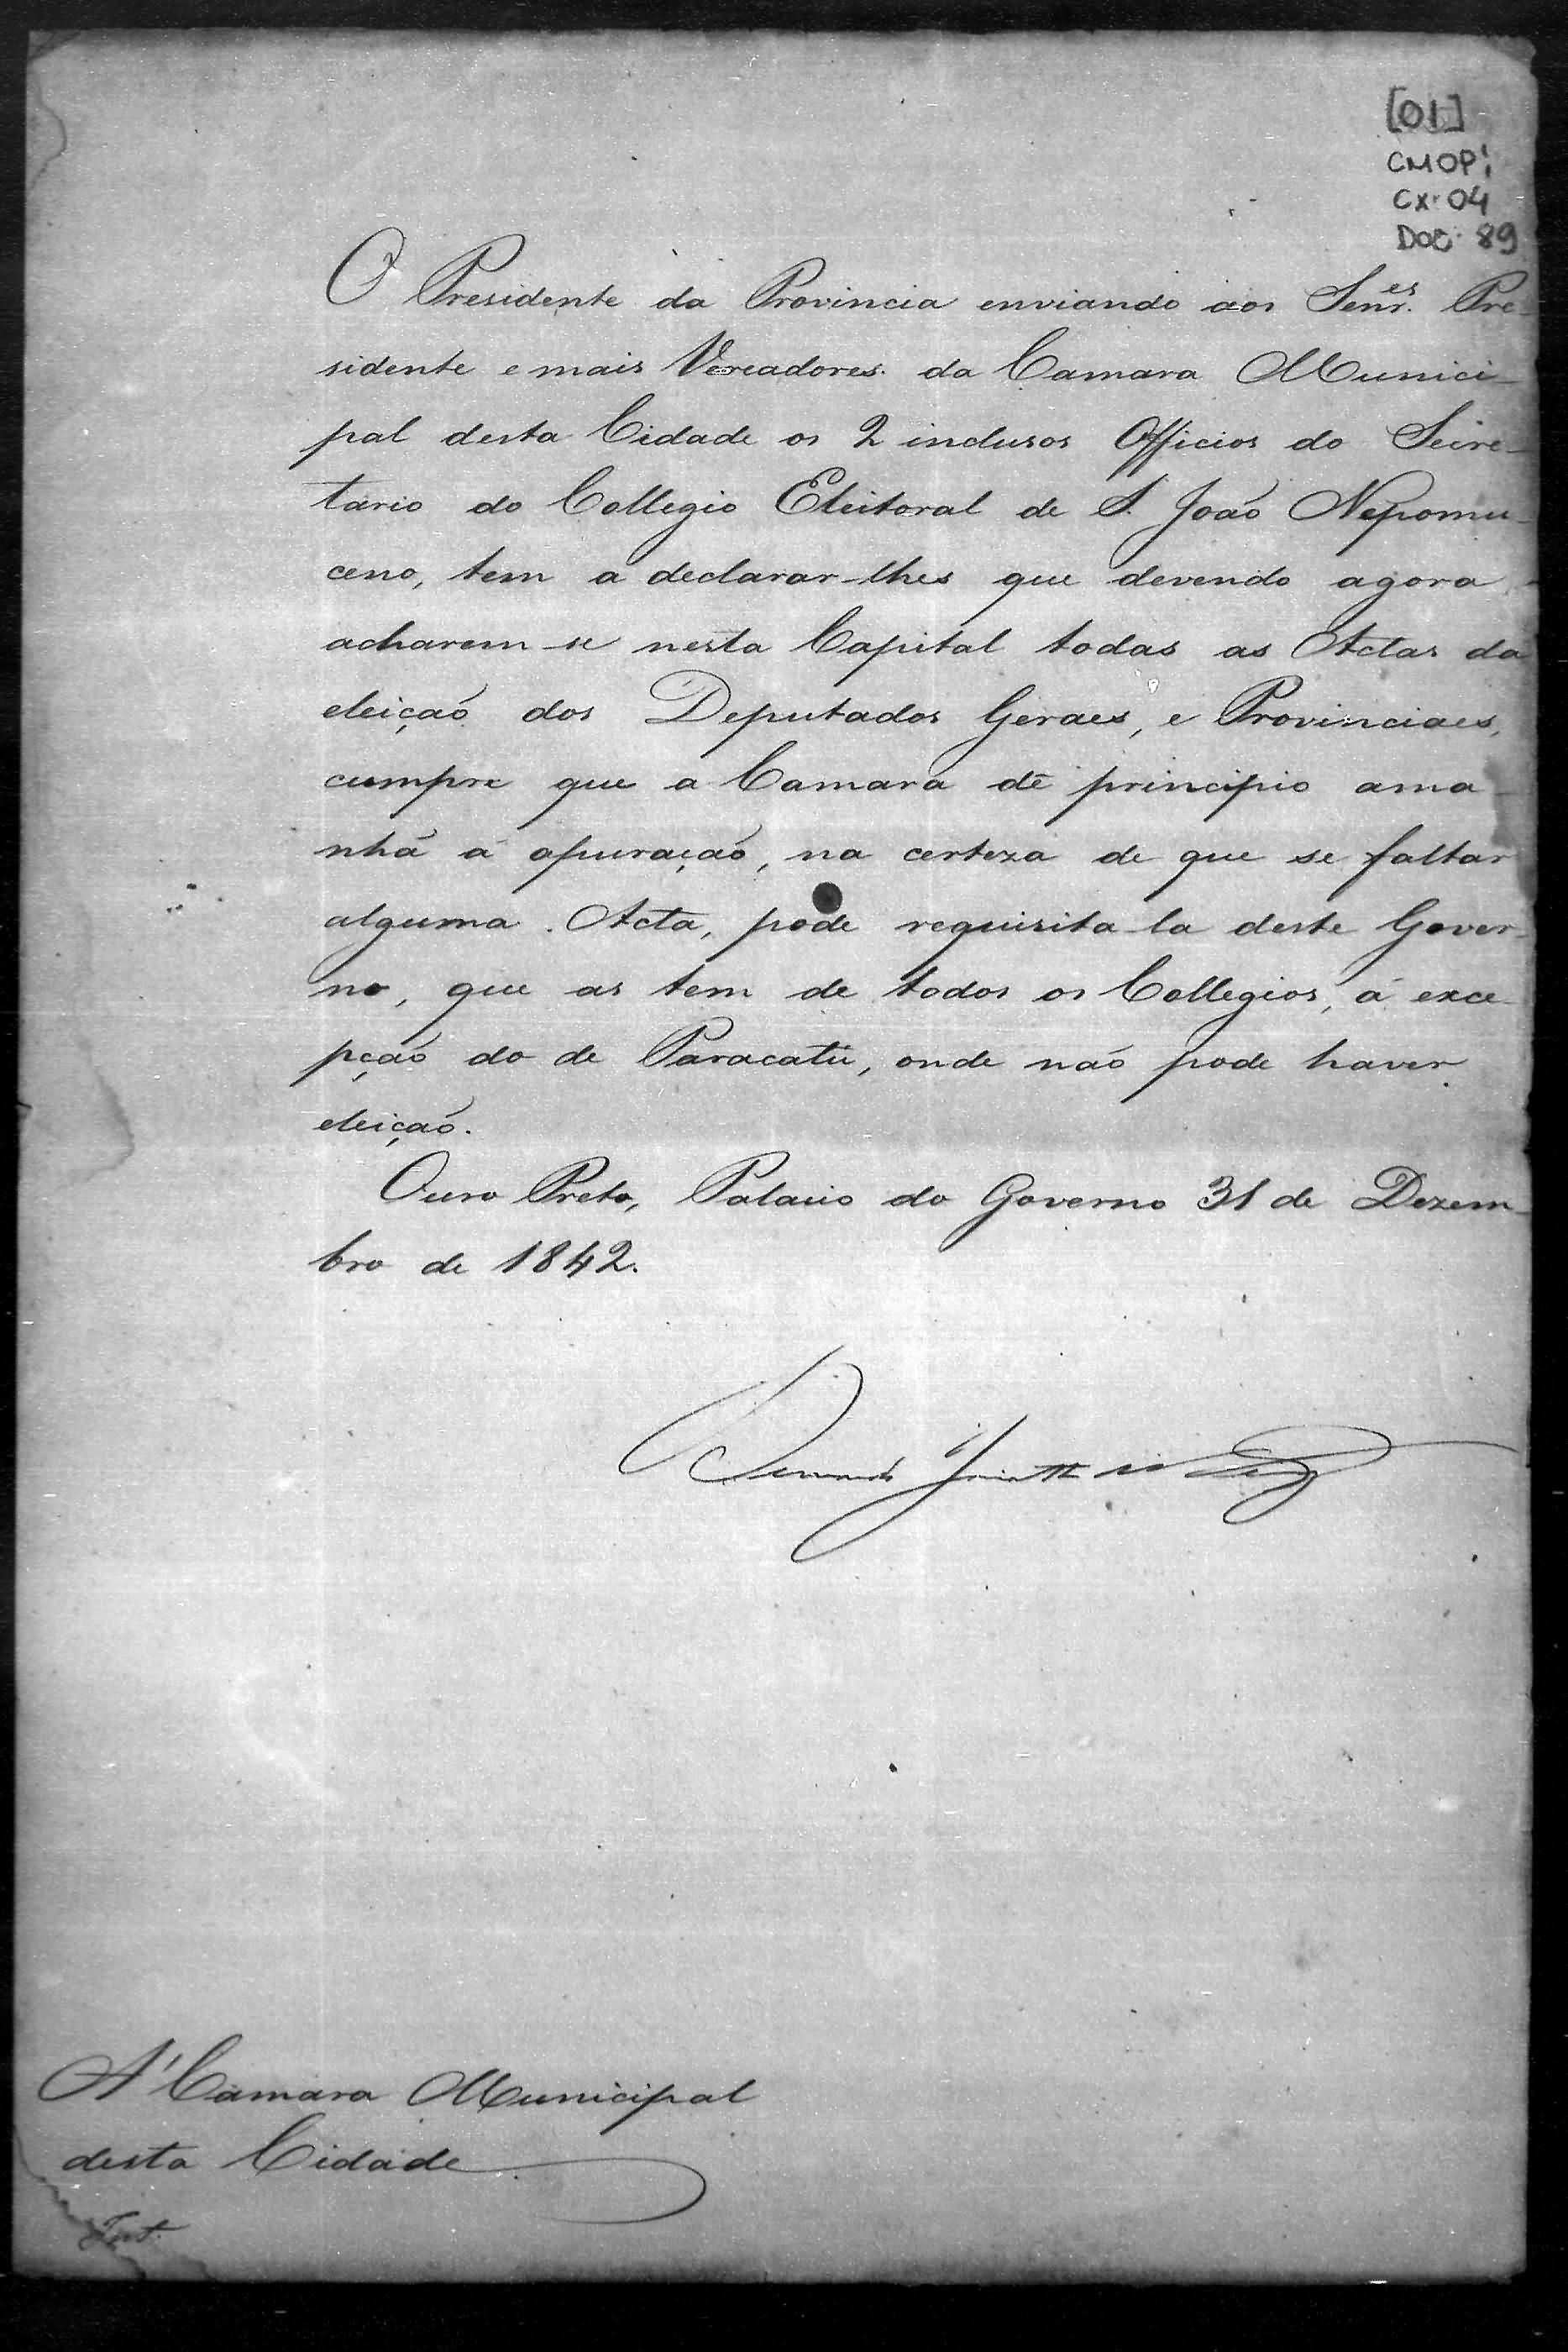 [01]
CMOPi
CX. 04
DOC. 89
O Presidente da Provincia enviando aos Senr.es Pre-
sidente e mais Vereadores da Camara Munici-
pal desta Cidade os 2 inclusos Officios do Secre-
tario do Collegio Eleitoral de S. João Nepomu-
ceno, tem a declarar-lhes que devendo agora
acharem-se nesta Capital todas as Actas da
eleição dos Deputados Geraes, e Provinciaes,
cumpre que a Camara dê principio ama-
nhã á apuração, na certeza de que se faltar
alguma Acta, pode requisita-la deste Gover-
no, que as tem de todos os Collegios, á exce-
pção do de Paracatú, onde não pode haver
eleição.
Ouro Preto, Palacio do Governo 31 de Dezem-
bro de 1842.
A' Camara Municipal
desta Cidade